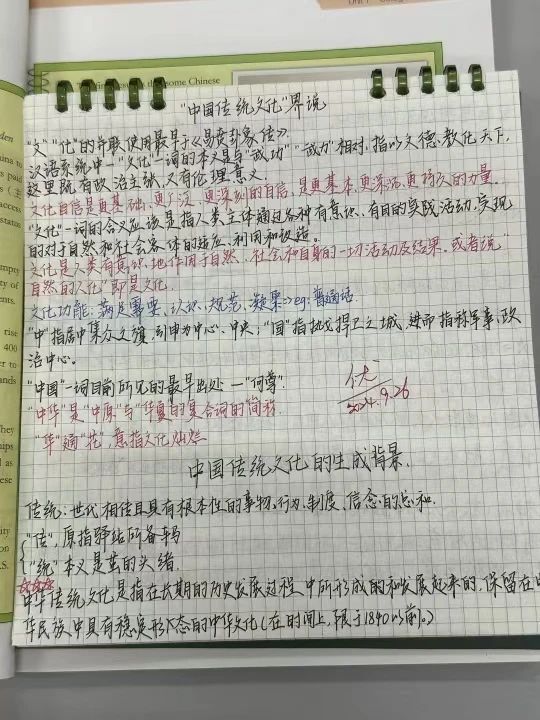 some Chinese
"中国传统文化"界说
"文""化"的并联使用最早于《易·贲卦·彖传》
汉语系统中"文化"一词的本义是与"武功""武力"相对,指以文德教化天下,
这里既有政治主张,又有伦理意义
文化自信是更基础、更广泛、更深刻的自信,是更基本、更深沉、更持久的力量.
"文化"一词的含义应该是指人类主体通过各种有意识、有目的实践活动,实现
的对于自然和社会客体的适应、利用和改造。
文化是人类有意识地作用于自然、社会和自身的一切活动及结果,或者说"
自然的人化"即是文化.
文化功能:满足需要、认识、规范、凝聚⇒eg:普通话
"中"指居中集众之旗,引申为中心、中央;"国"指执戈捍卫之城,进而指称军事、政
治中心。
"中国"一词目前所见的最早出处—"何尊".
"中华"是"中原"与"华夏"的复合词的简称.
"华"通"花",意指文化灿烂
优
2024.9.26
中国传统文化的生成背景.
传统:世代相传且具有根本性的事物、行为、制度、信念的总和.
"传",原指驿站所备车马
"统"本义是茧的头绪.
☆☆☆
中华传统文化是指在长期的历史发展过程中所形成的和发展起来的,保留在中
华民族中具有稳定形态的中华文化(在时间上,限于1840以前。)
rise
400